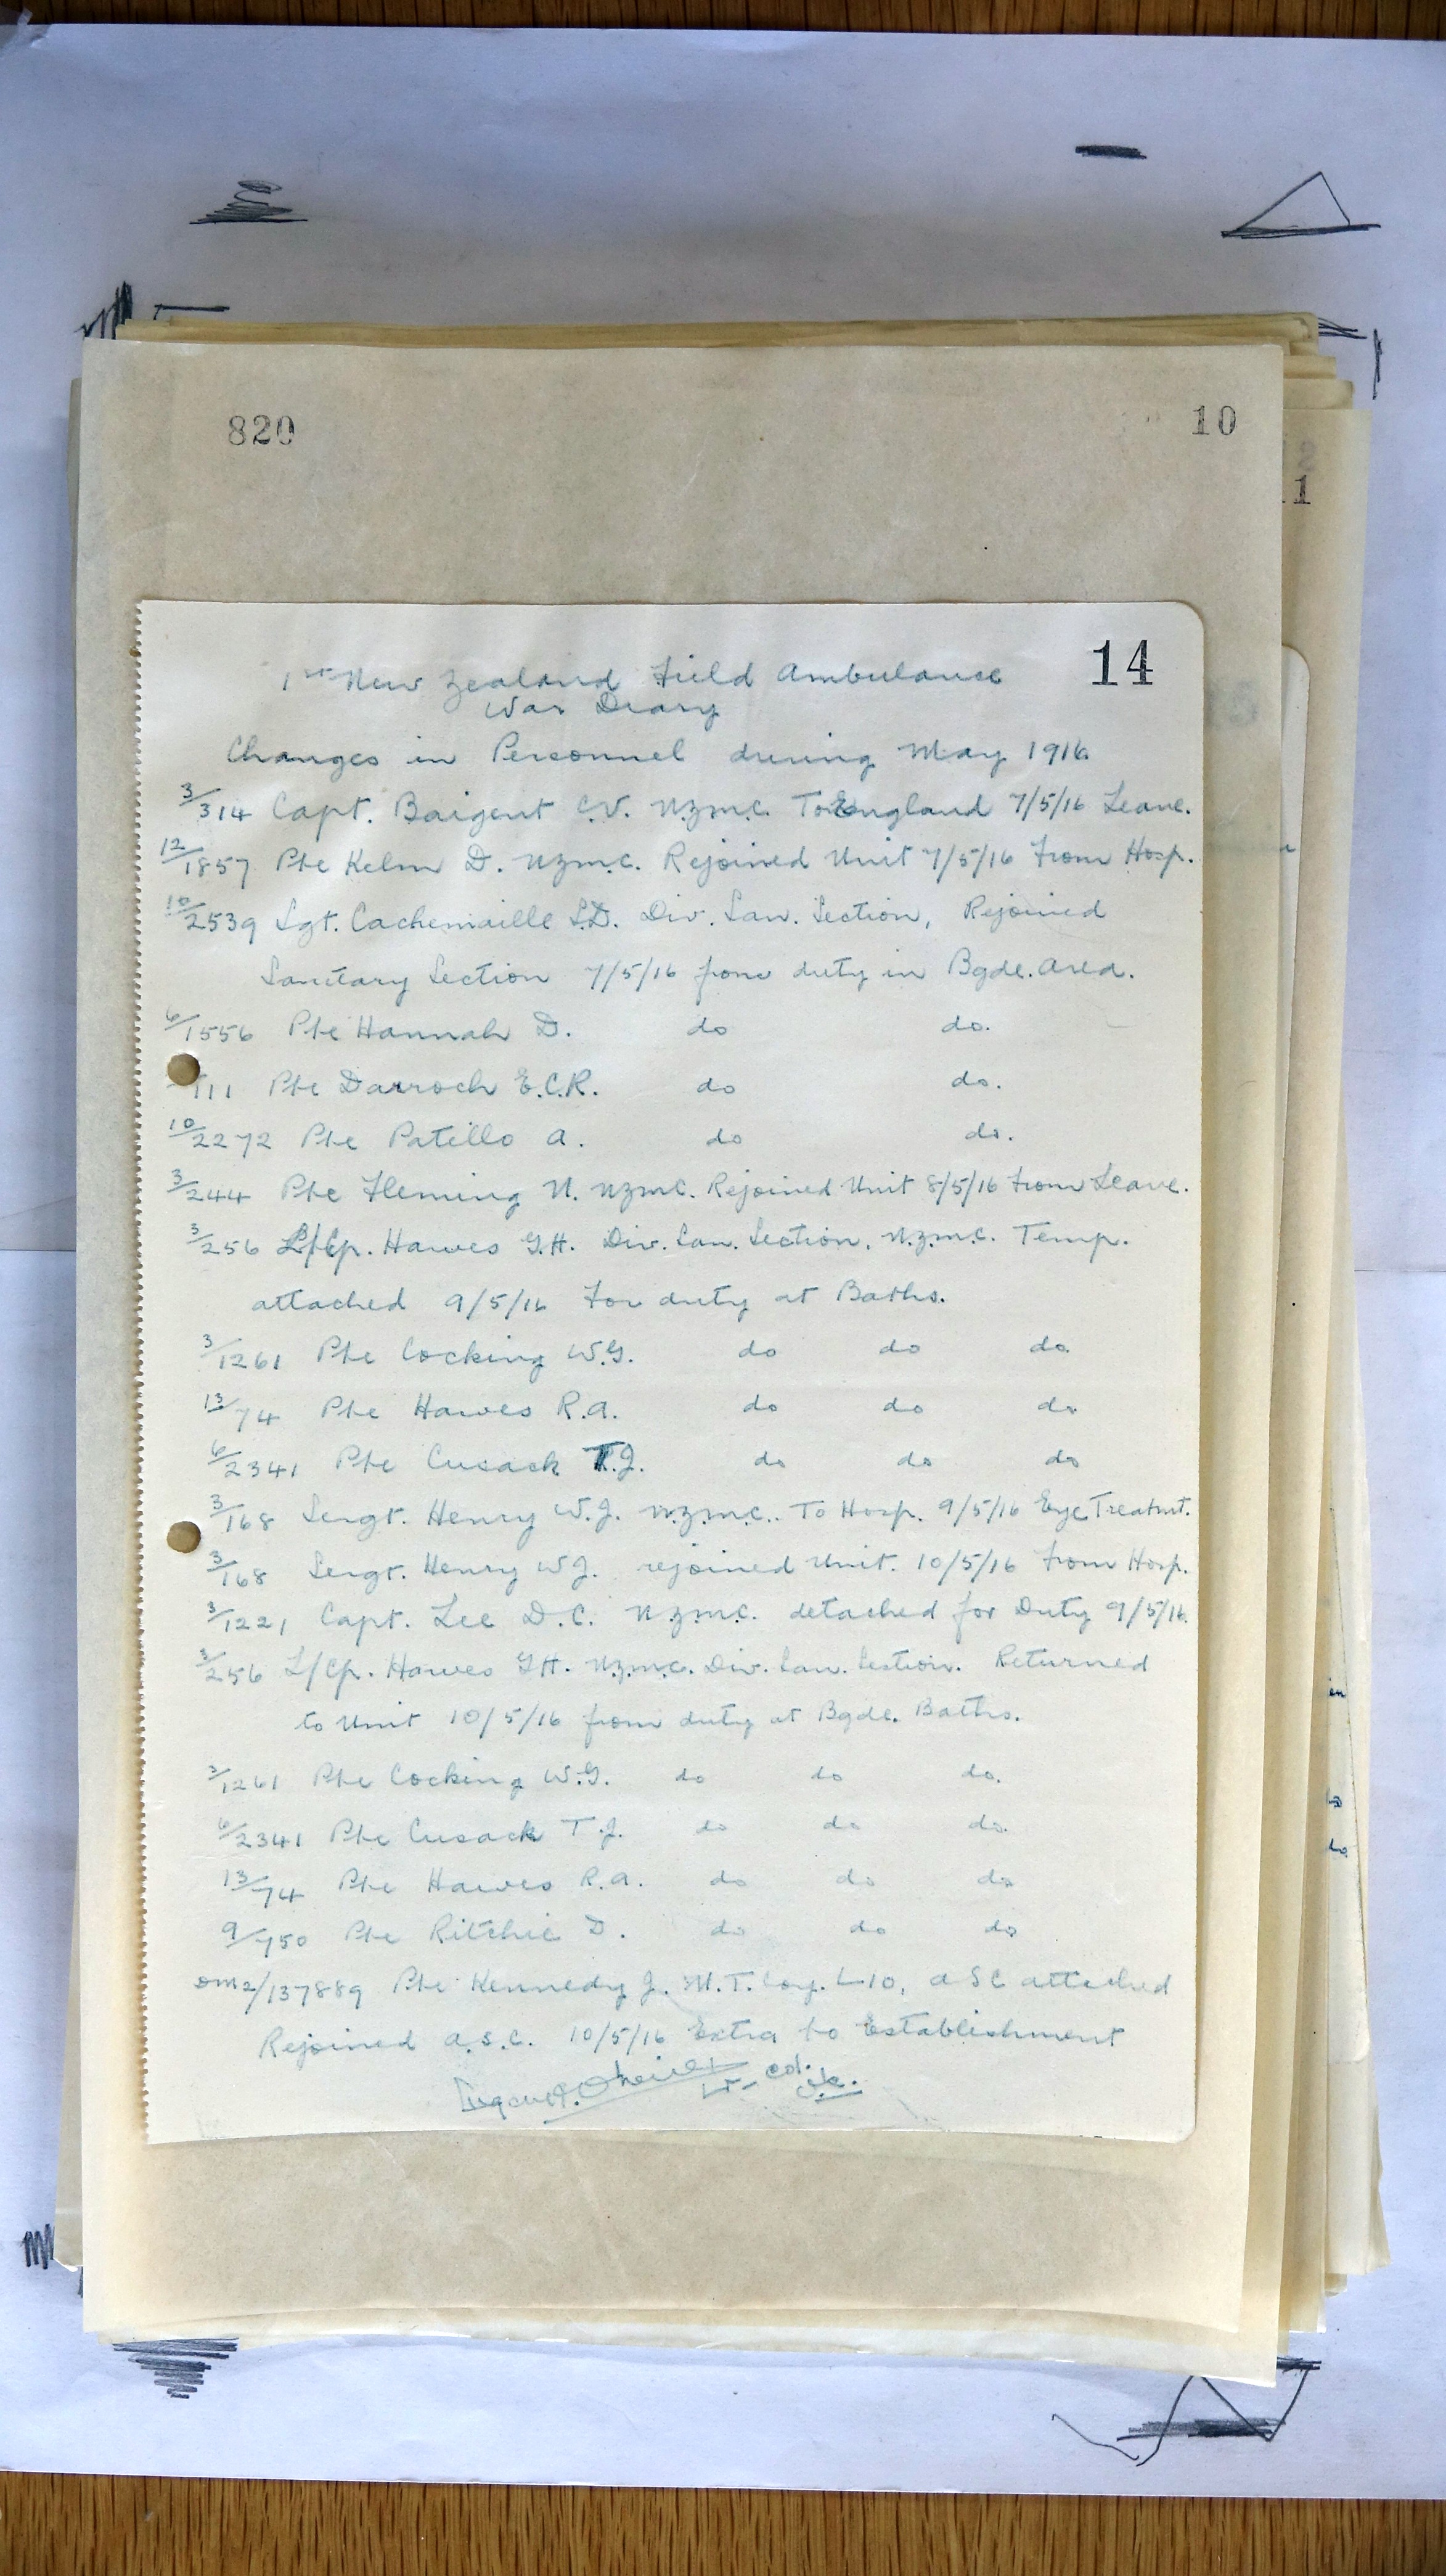 820
10
14
1st New Zealand Field Ambulance
War Diary
Changes in Personnel during May 1916
3/314 Capt. Baigent C.V. N.Z.M.C. To England 7/5/16 Leave.
12/1857 Pte Kelm D. NZMC. Rejoined Unit 7/5/16 from Hosp.
10/2539 Sgt. Cachemaille S.D. Div. San. Section, Rejoined
Sanitary Section 7/5/16 from duty in Bgde. Area.
6/1556 Pte Hannah D. do do.
/111 Pte Darroch E.C.R. do do.
10/2272 Pte Patillo A. do do.
3/244 Pte Fleming N. NZMC. Rejoined Unit 8/5/16 from Leave.
3/256 L/Cp. Hawes G.H. Div. San. Section, N.Z.M.C. Temp.
attached 9/5/16 for duty at Baths.
3/1261 Pte Cocking W.G. do do do.
13/74 Pte Hawes R.A. do do do
6/2341 Pte Cusack T.J. do do do
3/168 Sergt. Henry W.J. N.Z.M.C.. To Hosp. 9/5/16 Eye Treatmt.
3/168 Sergt. Henry W J. rejoined Unit. 10/5/16 from Hosp.
3/1221 Capt. Lee D.C. N.Z.M.C. detached for Duty 9/5/16.
3/256 L/Cp. Hawes G H. N.Z.M.C. Div. San. Section. Returned
to Unit 10/5/16 from duty at Bgde. Baths.
3/1261 Pte Cocking W.G. do do do.
6/2341 Pte Cusack T.J. do do do.
13/74 Pte Hawes R.A. do do do
9/750 Pte Ritchie D. do do do
DM2/137889 Pte Kennedy J. M.T. Coy. L10, ASC attached
Rejoined A.S.C. 10/5/16 Extra to Establishment
Lt-Col.